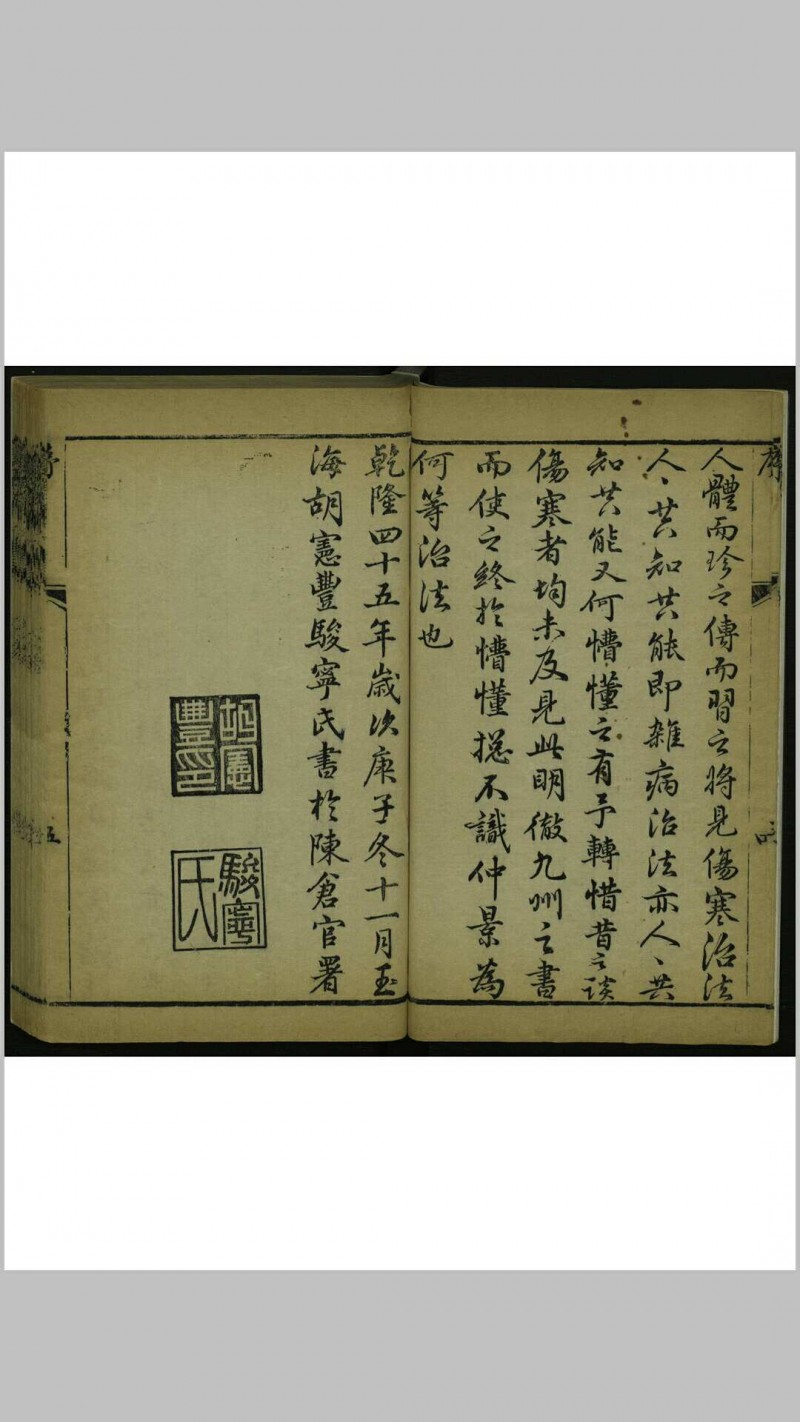 序
人體而珍之傳而習之將見傷寒治法
人、共知共能即雜病治法亦人、共
知共能又何懵懂之有予轉惜昔之談
傷寒者均未及見此明徹九州之書
而使之終於懵懂摠不識仲景為
何等治法也
乾隆四十五年歲次庚子冬十一月玉
海胡憲豐駿寧氏書於陳倉官署
胡憲豐印
駿寧氏
五